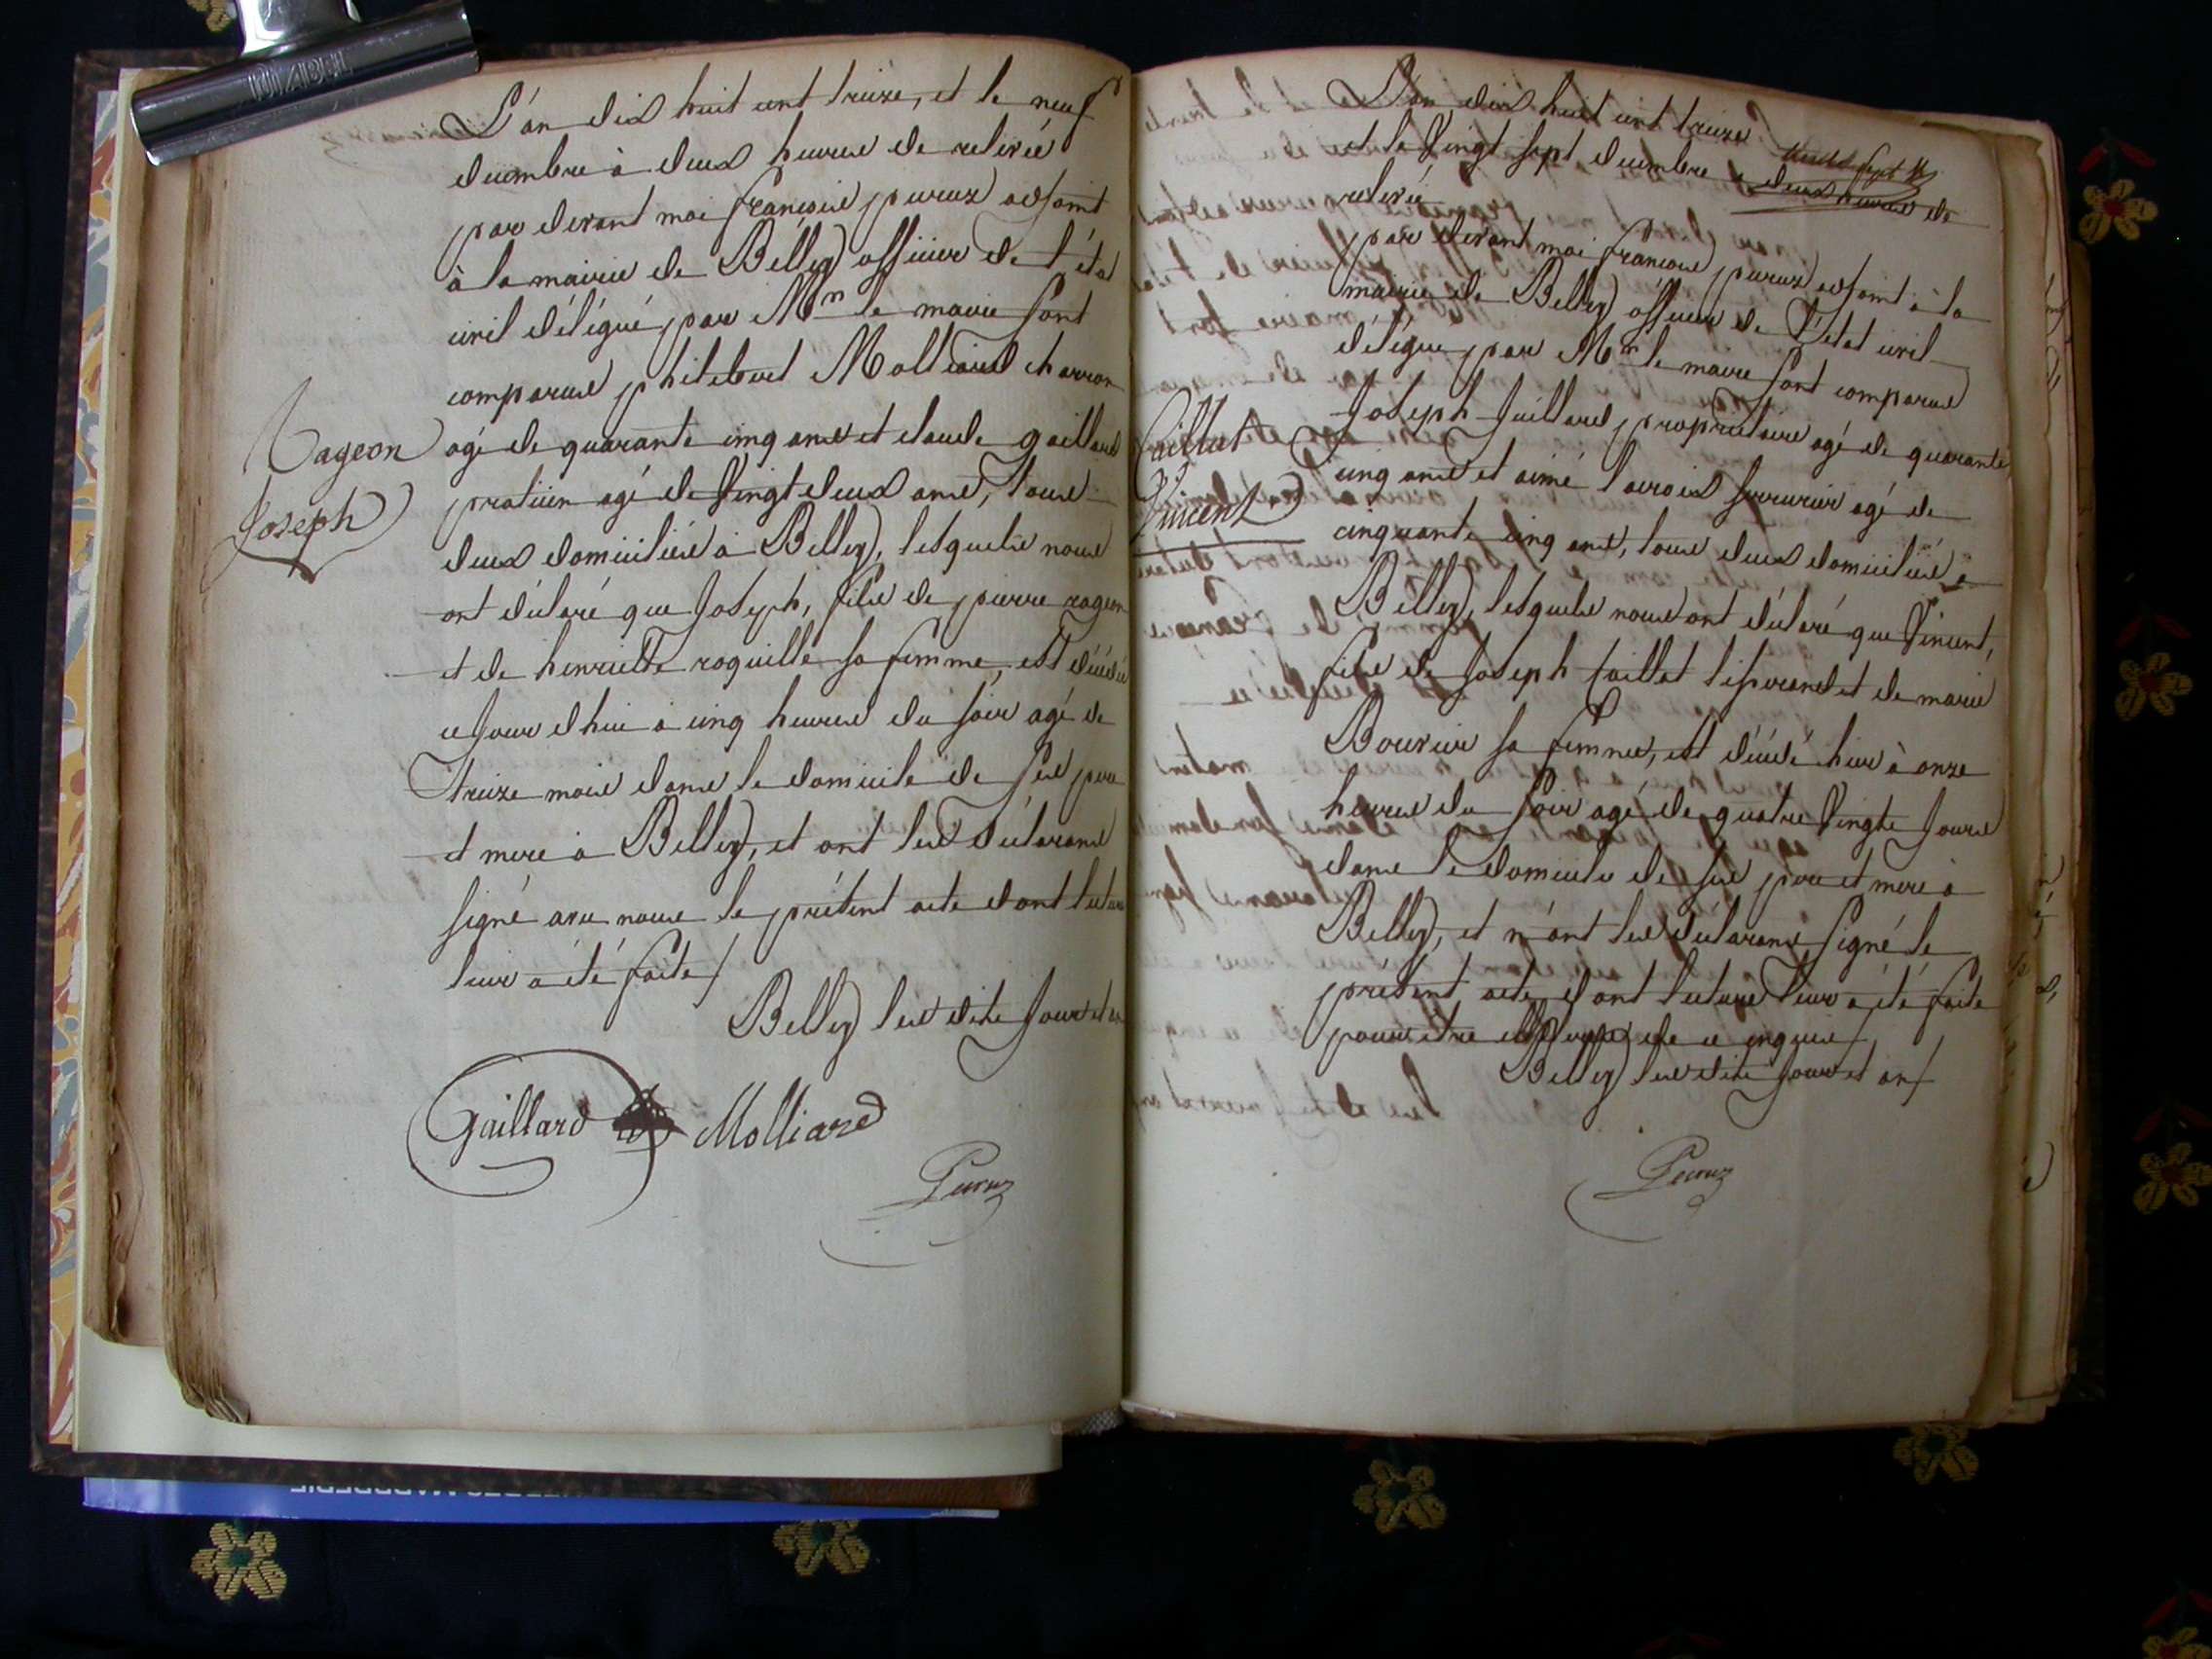 L'an dix huit cent treize, et le neuf
decembre à deux heures de relevée
par devant moi françois peruz adjoint
à la mairie de Belley officier de l'état
civil délégué par Mr le maire sont
comparus philibert Molliard charron
agé de quarante cinq ans et claude gaillard
praticien agé de Vingt deux ans, tous
deux domiciliés à Belley, lesquels nous
ont déclaré que Joseph, fils de pierre rageon
et de henriette roquille sa femme, est décédé
ce jour d'hui à cinq heures du soir agé de
treize mois dans le domicile de ses pere
et mere à Belley, et ont les déclarans
signé avec nous le présent acte dont lecture
leur a été faite/
Belley les dits jour et an
Rageon
Joseph
Gaillard Molliard
Peruz
L'an dix huit cent treize
et le Vingt sept decembre a deux heures de
relevée
par devant moi françois peruz adjoint à la
mairie de Belley officier de l'état civil
délégué par Mr le maire sont comparus
Joseph Juillard propriétaire agé de quarante
cinq ans et aimé serrurier agé de
cinquante cinq ans, tous deux domiciliés a
Belley, lesquels nous ont déclaré que Vincent,
fils de Joseph Caillet tisserand et de marie
Bouvier sa femme, est décédé hier à onze
heures du soir agé de quatre Vingts jours
dans le domicile de ses pere et mere à
Belley, et n'ont les déclarans signé le
présent acte dont lecture leur a été faite
pour être de ce enquis/
Belley les dits jour et an/
Caillet
Vincent
Peruz
DIABEL